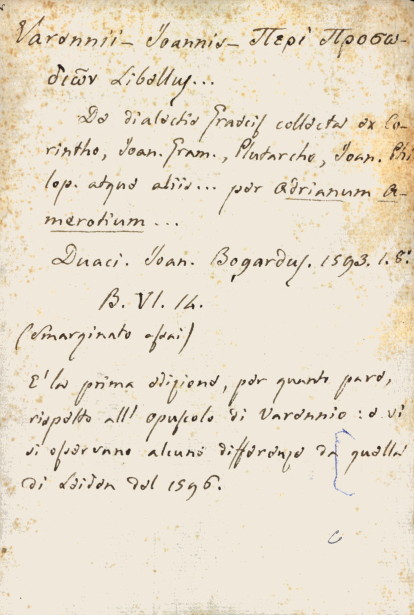 Varennii - Joannis - Περὶ Προσω-
διῶν Libellus...
De dialectis Graecis collecta ex Co-
rintho, Joan. Gram., Plutarcho, Joan. Phi
lop. atque aliis... per Adrianum A-
merotium...
Duaci. Joan. Bogardus. 1593. 1. 8°.
B. VI. 14.
(smarginato assai)
E' la prima edizione, per quanto pare,
rispetto all' opuscolo di Varennio: e vi
si osservano alcune differenze da quella
di Leiden del 1596.